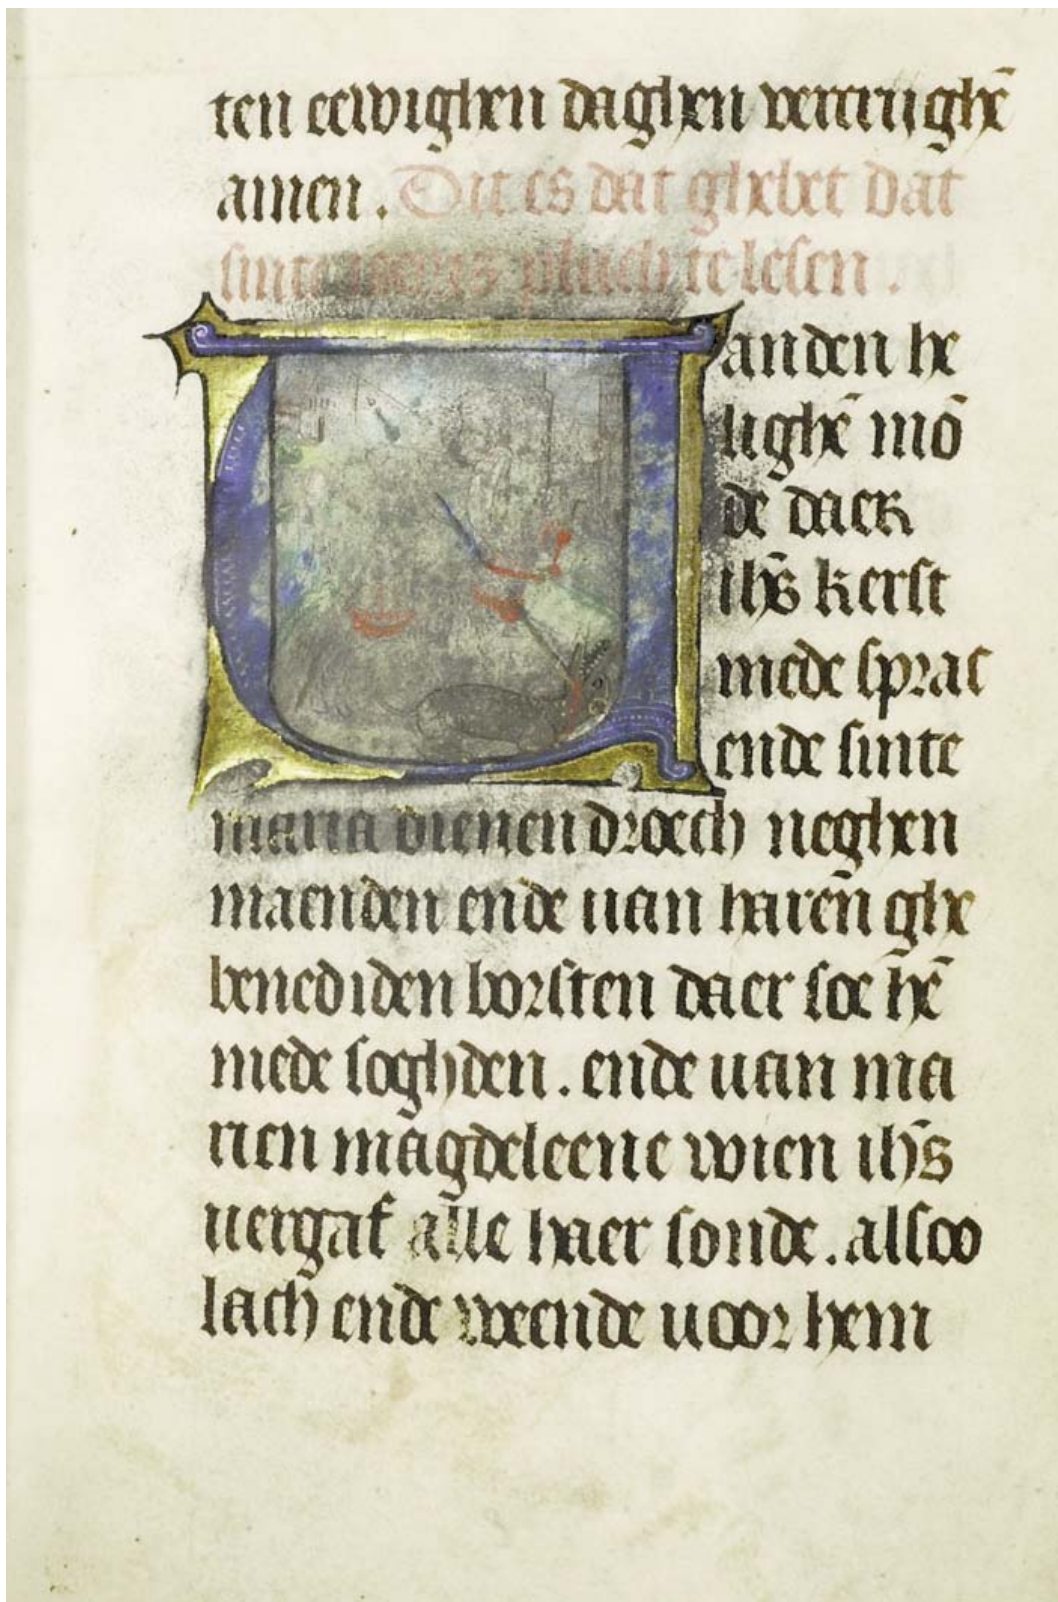 ten eewighen daghen
amen. Dit es dat ghebet dat
sinte plach te lesen.
Vanden he
lighē mō
de daer
ihs̄ kerst
mede sprac
ende sinte
maria dienen droech neghen
maenden ende uan harēn ghe
benediden borsten daer soe hē
mede soghden. ende uan ma
rien magdeleene wien ihs̄
uergaf alle haer sonde. alsoo
lach ende weende uoor hem